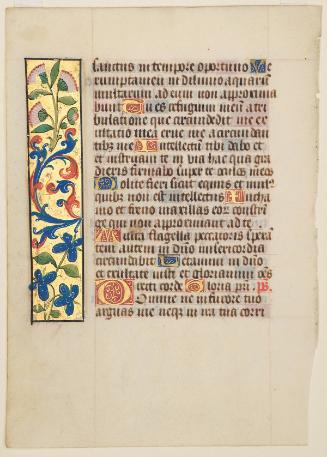 sanctus in tempore oportuno Ve
rumptamen in diluvio aquarum
multarum ad eum non approxima
bunt Tu es refugium meum a tri
bulatione que circundedit me ex
ultatio mea erue me a circundan
tibus me Intellectum tibi dabo et
et instruam te in via hac qua gra
dieris firmabo super te oculos meos
Nolite fieri sicut equus et mul9
quibus non est intellectus In cha
mo et freno maxillas eorum constri
ge qui non approximant ad te
Multa flagella peccatoris speran
tem autem in domino misericordia
circundabit Letamini in domino
et exultate iusti et gloriamini oes
recti corde Gloria pri. ps.
Domine ne in furore tuo
arguas me neque in ira tua corri